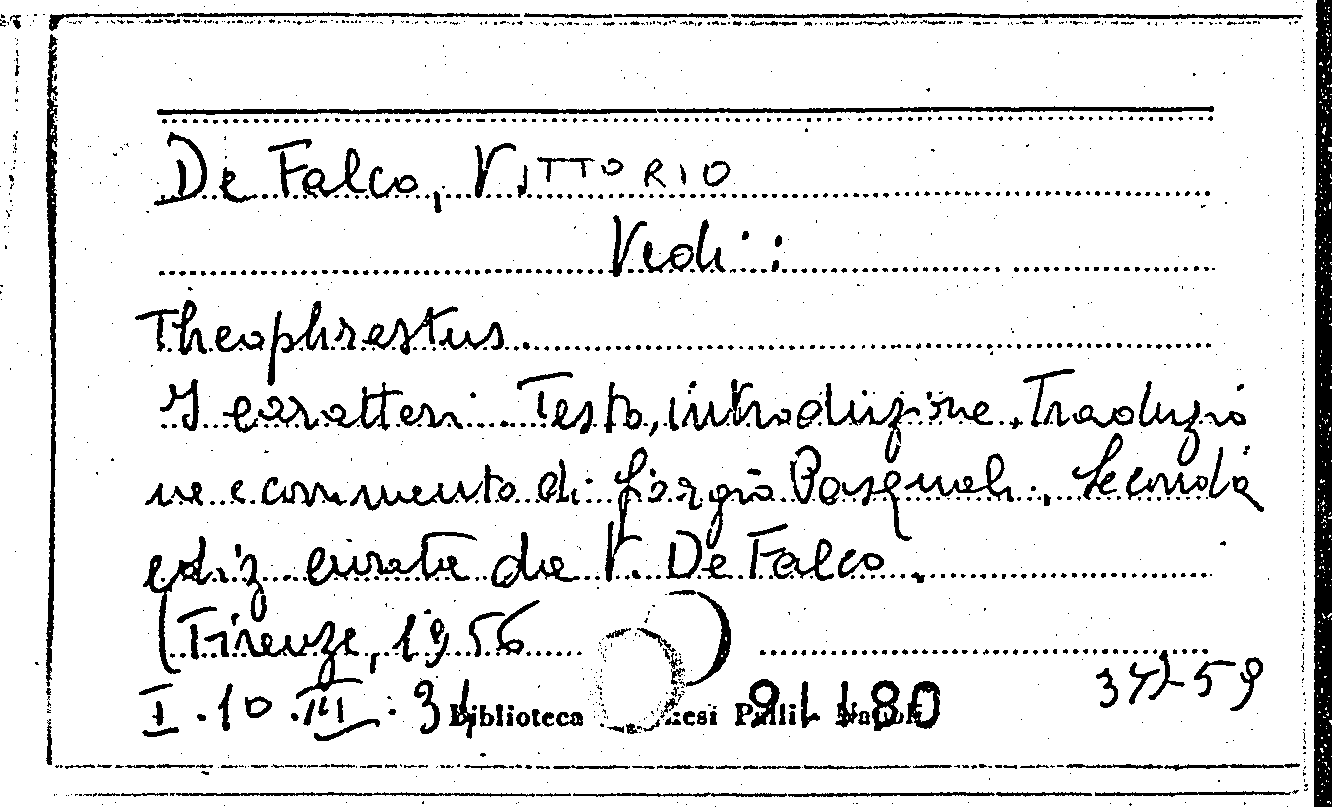 De Falco, VITTORIO
Vedi:
Theophrastus.
I caratteri. Testo, introduzione. Traduzio
ne e commento di Giorgio Pasquali. Seconda
ediz curata da V. De Falco.
(Firenze, 1956)
I. 10. III. 34 91180
Biblioteca Napoli